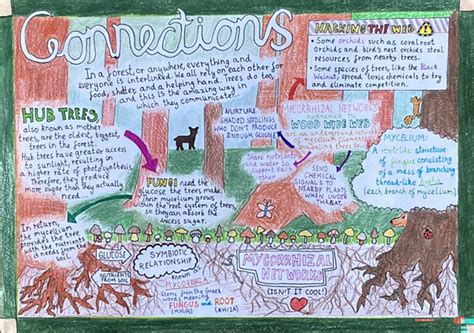 Connections
In a forest, or anywhere, everything and
everyone is interlinked. We all rely on each other for
food, shelter, and a helping hand. Trees do too,
and this is the amazing way in
which they communicate...
HACKING THE WEB
• Some orchids such as coral root
orchids and birds nest orchids steal
resources from nearby trees.
• Some species of trees, like the Black
Walnut, spread toxic chemicals to try
and eliminate competition.
HUB TREES,
also known as mother
trees, are the oldest, biggest,
trees in the forest.
Hub trees have greater access
to sunlight, resulting in
a higher rate of photosynthesis.
Therefore, they produce
more sugar than they actually
need...
NURTURE
SHADED SEEDLINGS
WHO DON'T PRODUCE
ENOUGH GLUCOSE
MYCORRHIZAL NETWORKS
nicknamed
WOOD WIDE WEB
are an underground network
of
connecting trees
Share nutrients
water to
support each
other
SEND
CHEMICAL
SIGNALS TO
NEARBY PLANTS
WHEN UNDER
THREAT
MYCELIUM:
A root-like structure
of fungus consisting
of a mass of branching
thread-like hypha
(each branch of mycelium).
FUNGI need the
glucose the trees make.
Their mycelium grows
within the root system of trees,
so they can absorb the
excess sugar.
In return,
the mycelium
provides the tree
with the nutrients
it needs from the
soil.
GLUCOSE
NUTRIENTS
FROM SOIL
SYMBIOTIC
RELATIONSHIP
known as
MYCORRHIZA
Stems from the Greek
words meaning
FUNGUS and ROOT
(MYKÓS) (RHIZA)
MYCORRHIZAL
NETWORKS
(ISN'T IT COOL!)